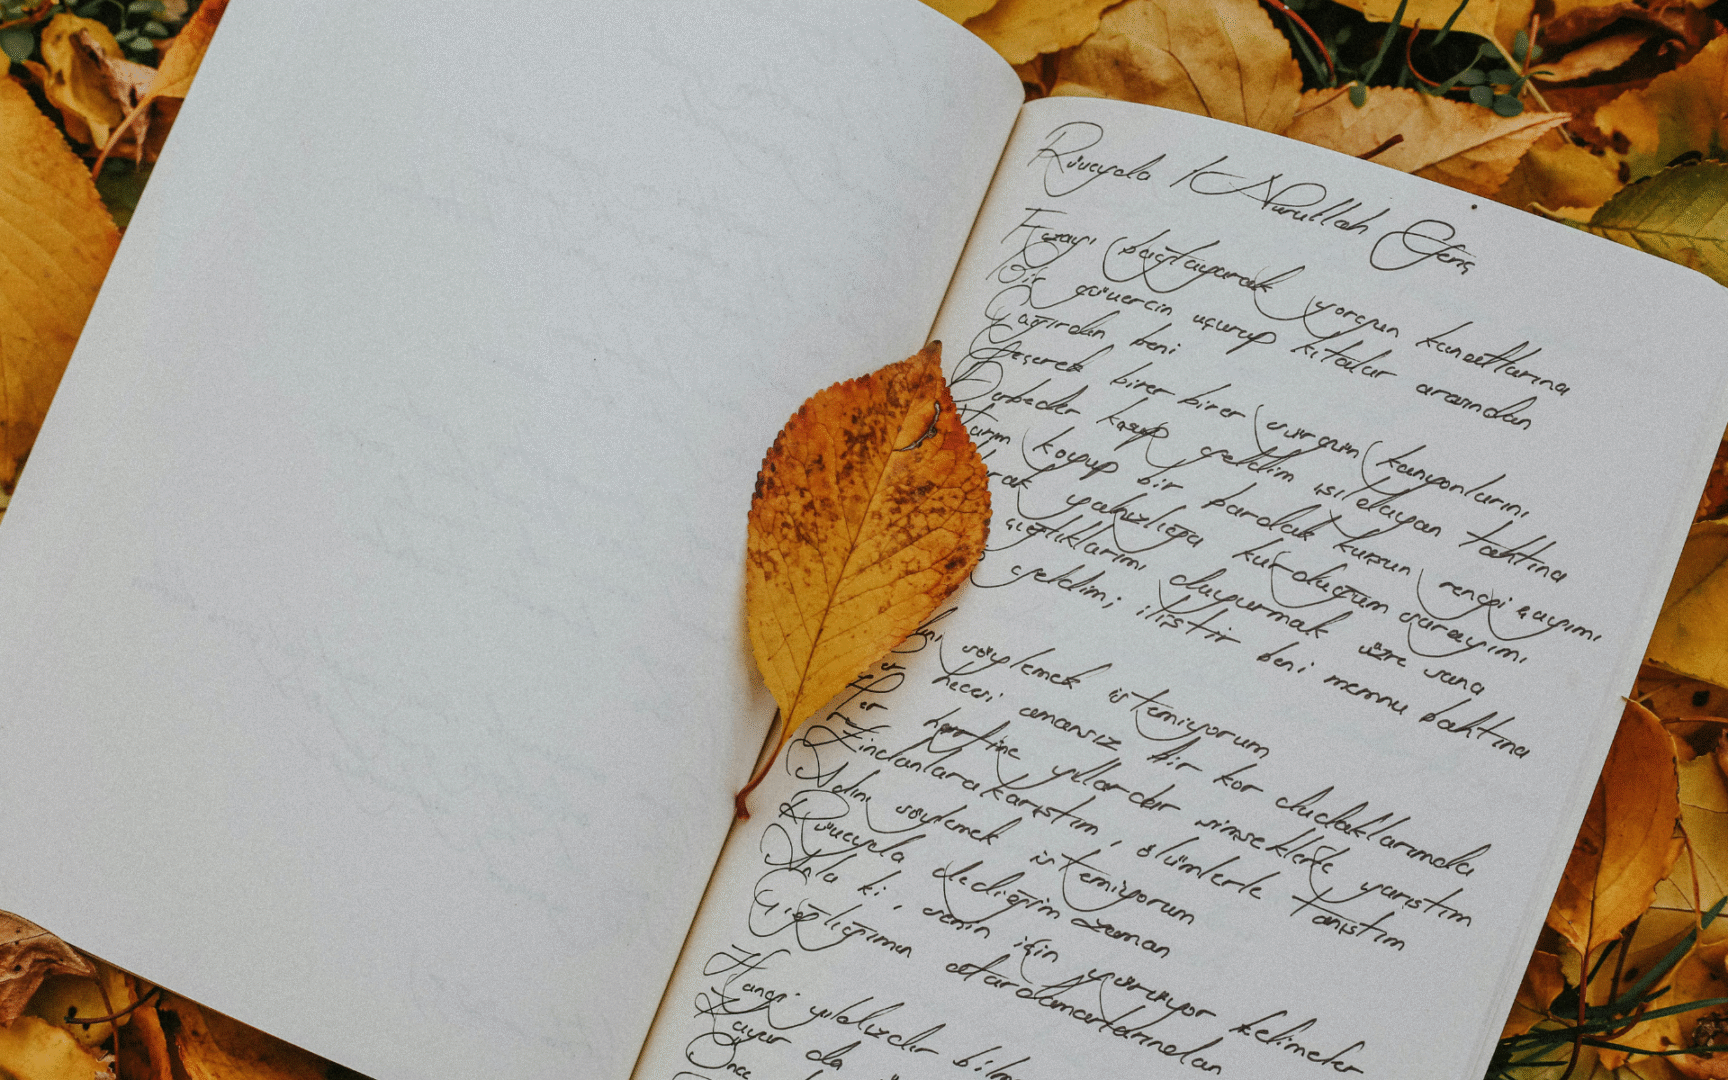 Rüveyda / Nurullah Genç
Fezayı bağlayarak yorgun kanatlarına
Bir güvercin uçurup kıtalar arasından
Çağırdın beni
Geçerek birer birer sürgün kanyonlarını
Derbeder koşup geldim ışıldayan tahtına
Yarım koyup bir bardak kurşun rengi çayımı
rak yalnızlığa kurduğum sarayımı
çığlıklarımı duyurmak üzre sana
geldim; iliştir beni memnu bahtına
söylemek istemiyorum
Her hecesi amansız bir kor dudaklarımda
Her harfine yıllardır şimşeklerle yarıştım
Zindanlara karıştım, ölümlerle tanıştım
Adını söylemek istemiyorum
Rüveyda dediğim zaman
Anla ki, senin için yürüyor kelimeler
Çığlığımın atardamarlarından
Hangi yıldızdır bilm
Kayar da
Önce